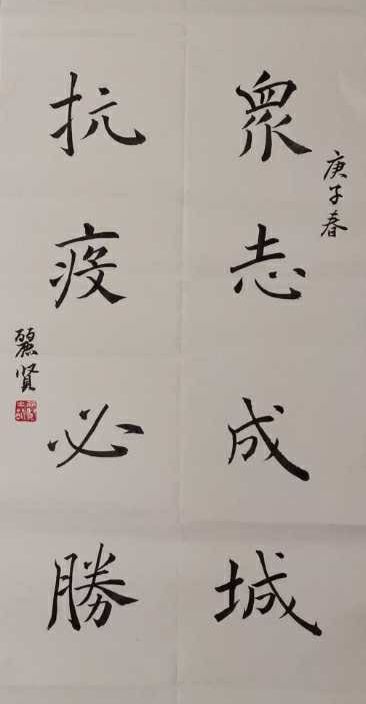 庚子春
眾志成城
抗疫必勝
麗贤